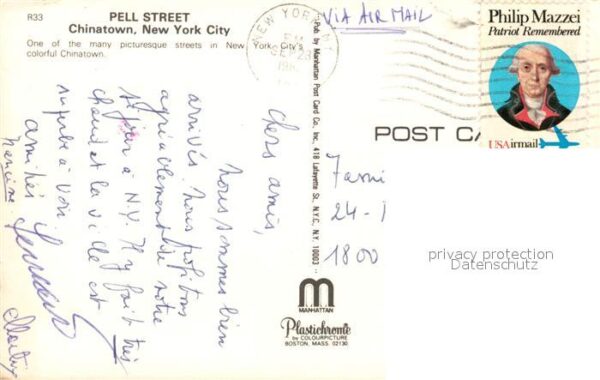 R33
PELL STREET
Chinatown, New York City
One of the many picturesque streets in New York City's
colorful Chinatown.
NEW YORK
PM
VIA AIR MAIL
Philip Mazzei
Patriot Remembered
USAirmail
POST CA
Pub by Manhattan Post Card Co., Inc., 418 Lafayette St., N.Y.C., N.Y. 10003
Chers amis,
nous sommes bien
arrivés. Nous profitons
agréablement de notre
séjour à N.Y. Il y fait très
chaud et la ville est
superbe à voir.
amitiés
Fami
24-
1800
privacy protection
Datenschutz
m
MANHATTAN
Plastichrome
by COLOURPICTURE
BOSTON, MASS. 02130